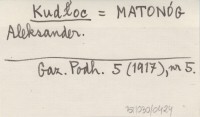 Kudłoc = MATONÓG
Aleksander.
Gaz. Podh. 5 (1917), nr 5.